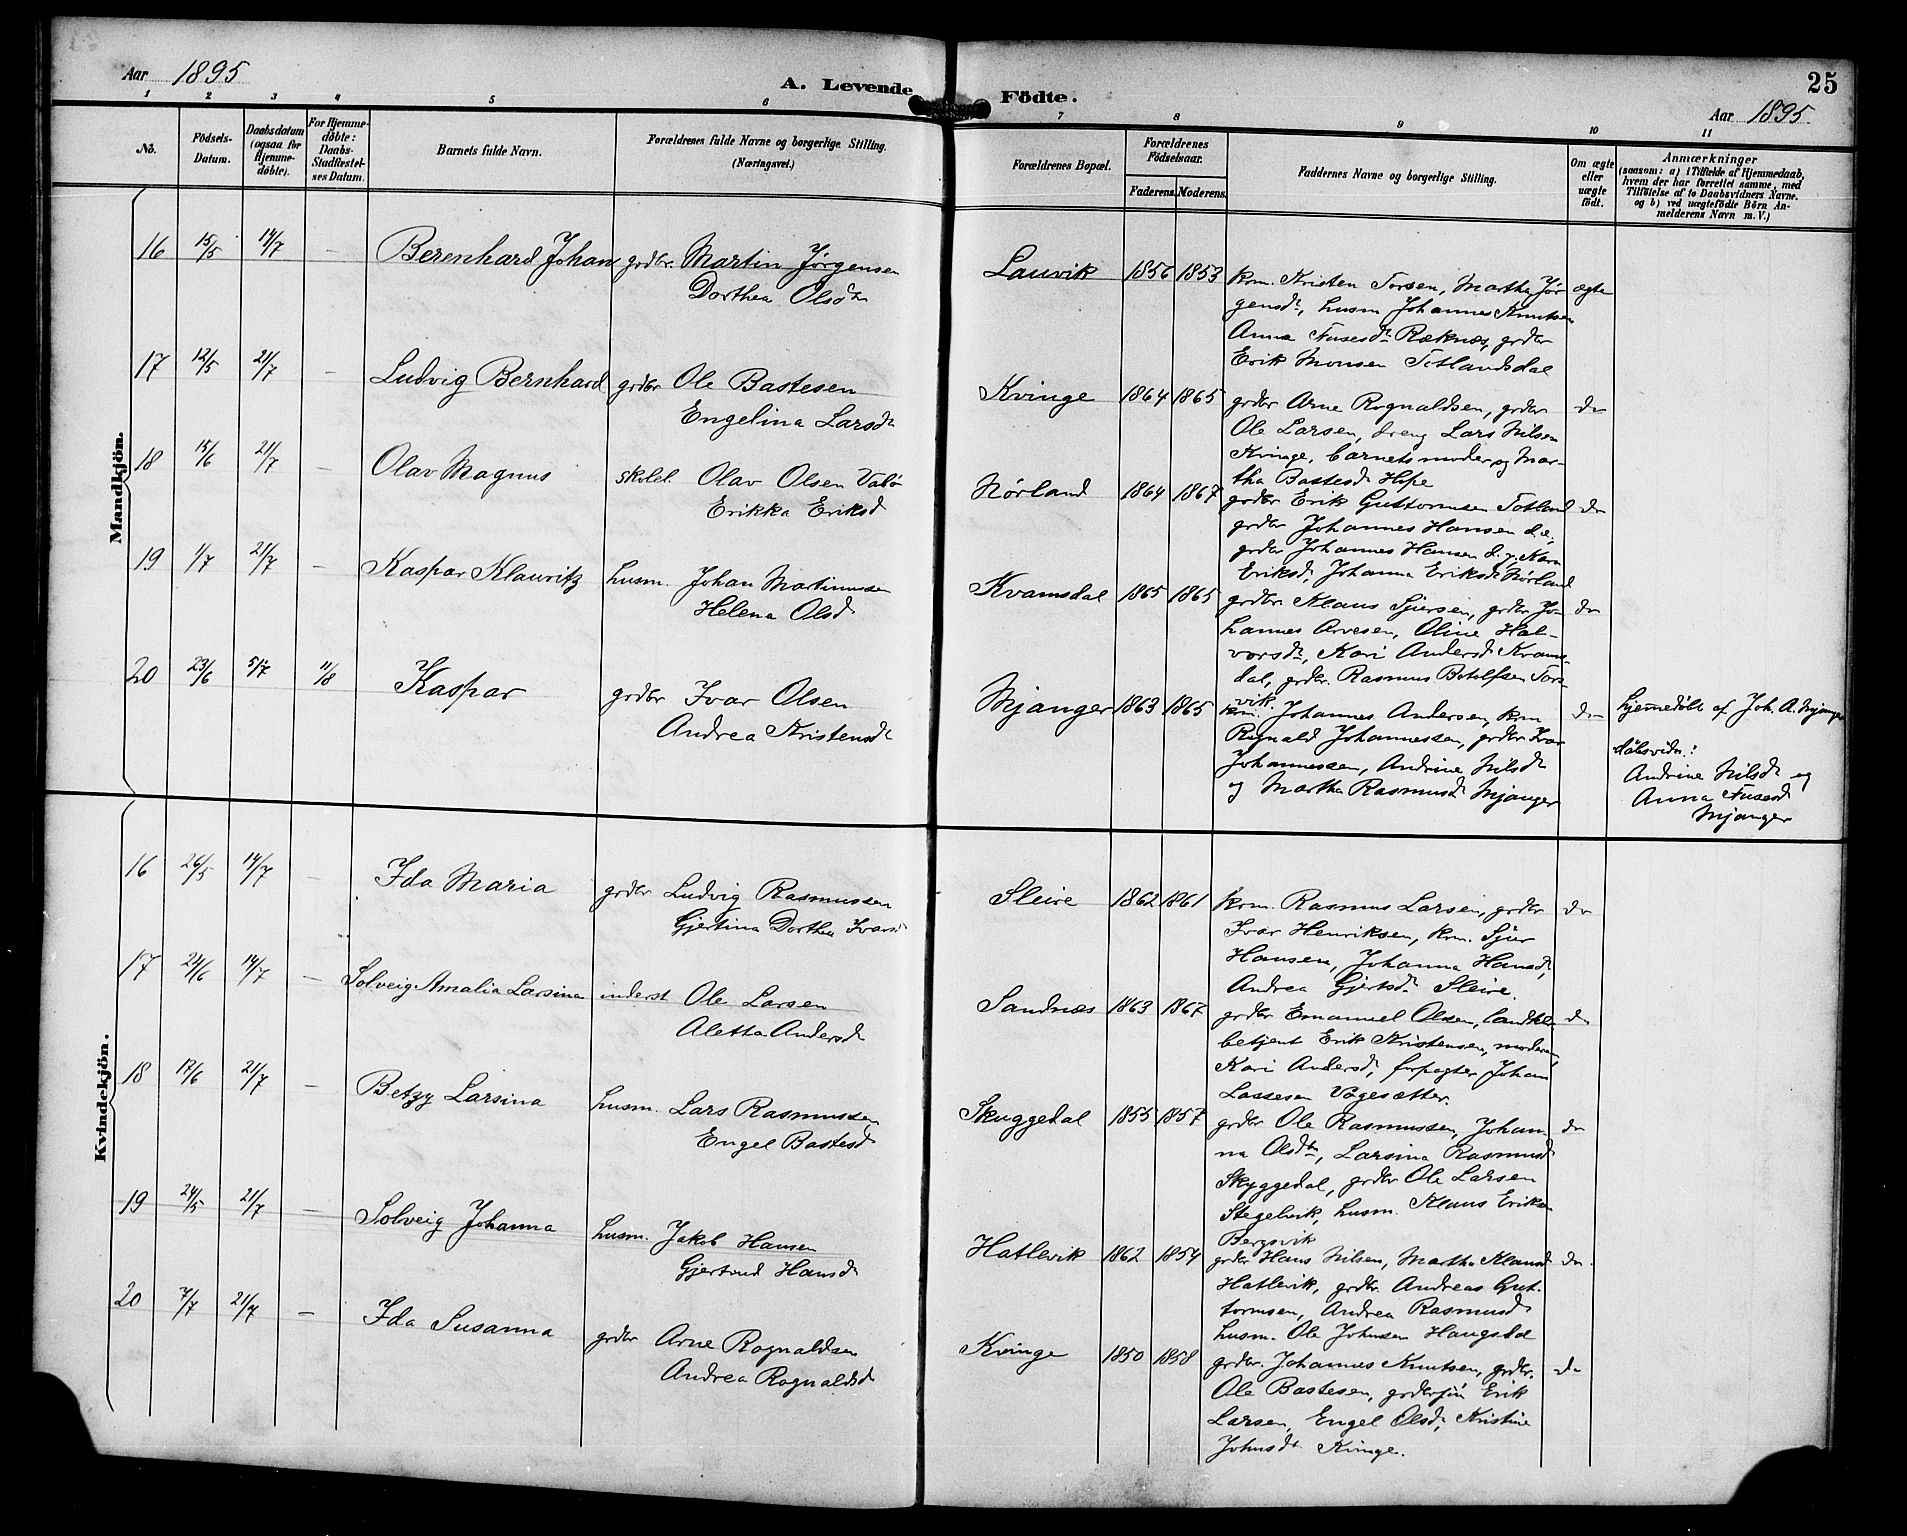 Aar 1895
A. Levende
Födte.
25
Aar 1895.
1 2 3 4 5 6 7 8 9 10 11
No.
Födsels-
Datum.
Daabsdatum
(ogsaa for
Hjemme-
döbte).
For Hjemme-
döbte:
Daabs-
Stadfæstel-
ses Datum.
Barnets fulde Navn.
Forældrenes fulde Navne og borgerlige Stilling.
(Næringsvei.)
Forældrenes Bopæl.
Forældrenes
Födselsaar.
Faderens. Moderens.
Faddernes Navne og borgerlige Stilling.
Om ægte
eller
uægte
födt.
Anmærkninger
(saasom: a) i Tilfælde af Hjemmedaab,
hvem der har forrettet samme, med
Tilföielse af to Daabsvidners Navne.
og b) ved uægtefödte Börn An-
melderens Navn m. V.)
Mandkjön.
16 15/5 14/7 — Berenhard Johan grdbr. Martin Jørgensen
Dorthea Olsdtr
Lauvik 1856 1853 krm. Kristen Torsen, Martha Jør ægte
gensdtr, husm Johannes Knutsen
Anna Fusesdtr Ræknæs, grdbr
Erik Monsen Totlandsdal
17 12/5 21/7 — Ludvig Bernhard grdbr Ole Bastesen
Engelina Larsdtr
Kvinge 1864 1865 grdbr Arne Rognaldsen, grdbr do
Ole Larsen, dreng Lars Nilsen
Kvinge, barnets moder og Mar-
tha Bastesdtr Hope
18 15/6 21/7 — Olav Magnus skolel. Olav Olsen Valø
Erikka Eriksd
Nørland 1864 1867 grdbr Erik Guttormsen Totland do
grdbr Johannes Hansen d. e.,
grdbr Johannes Hansen d. y. Kari
Eriksd, Johanna Eriksdtr Nørland
19 1/7 21/7 — Kaspar Klauritz husm. Johan Martinusen
Helena Olsd
Kvamsdal 1865 1865 grdbr. Klaus Sjursen, grdbr Jo- do
hannes Arvesen, Oline Hal-
vorsdtr, Kari Andersd Kvams-
dal, grdbr. Rasmus Botolfsen Tors-
vik.
20 23/6 5/7 11/8 Kaspar grdbr Ivar Olsen
Andrea Kristensdtr
Mjanger 1863 1865 krm. Johannes Andersen, krm do
Rognald Johannessen, grdbr. Ivar
Johannessen, Andrine Nilsdtr
og Martha Rasmusd Mjanger
hjemmedøbt af Joh. A. Mjanger
døbsvidn:
Andrine Nilsdtr og
Anna Fusesd
Mjanger
Kvindekjön.
16 26/5 14/7 — Ida Maria grdbr Ludvig Rasmussen
Gjertina Dorthea Ivarsd
Sleire 1862 1861 krm. Rasmus Larsen, grdbr do
Ivar Henriksen, krm. Sjur
Hansen, Johanna Hansd,
Andrea Gjertsdtr Sleire.
17 24/6 14/7 — Solveig Amalia Larsina inderst Ole Larsen
Aletta Andersd
Sandnæs 1863 1867 grdbr Emanuel Olsen, landhb. do
betjent Erik Kristensen, moderen,
Kari Andersd, forpagter Johan
Lassesen Vågesætter.
18 17/6 21/7 — Betzy Larsina husm. Lars Rasmussen
Engel Bastesd
Skuggedal 1855 1857 grdbr Ole Rasmussen, Johan- do
na Olsdtr, Larsina Rasmusd
Skyggedal, grdbr Ole Larsen
Stegelvik, husm. Klaus Eriksen
Bergsvik
19 24/5 21/7 — Solveig Johanna husm. Jakob Hansen
Gjertrud Hansd
Hatlevik 1862 1854 grdbr Hans Nilsen, Martha Klausd do
Hatlevik, grdbr. Andreas Gut-
tormsen, Andrea Rasmusd
husm. Ole Johnsen Haugsdal
20 7/7 21/7 — Ida Susanna grdbr Arne Rognaldsen
Andrea Rognaldsd
Kvinge 1850 1858 grdbr. Johannes Knutsen, grdbr. do
Ole Bastesen, grdbrsøn Erik
Larsen, Engel Olsd, Kristine
Johnsdtr Kvinge.